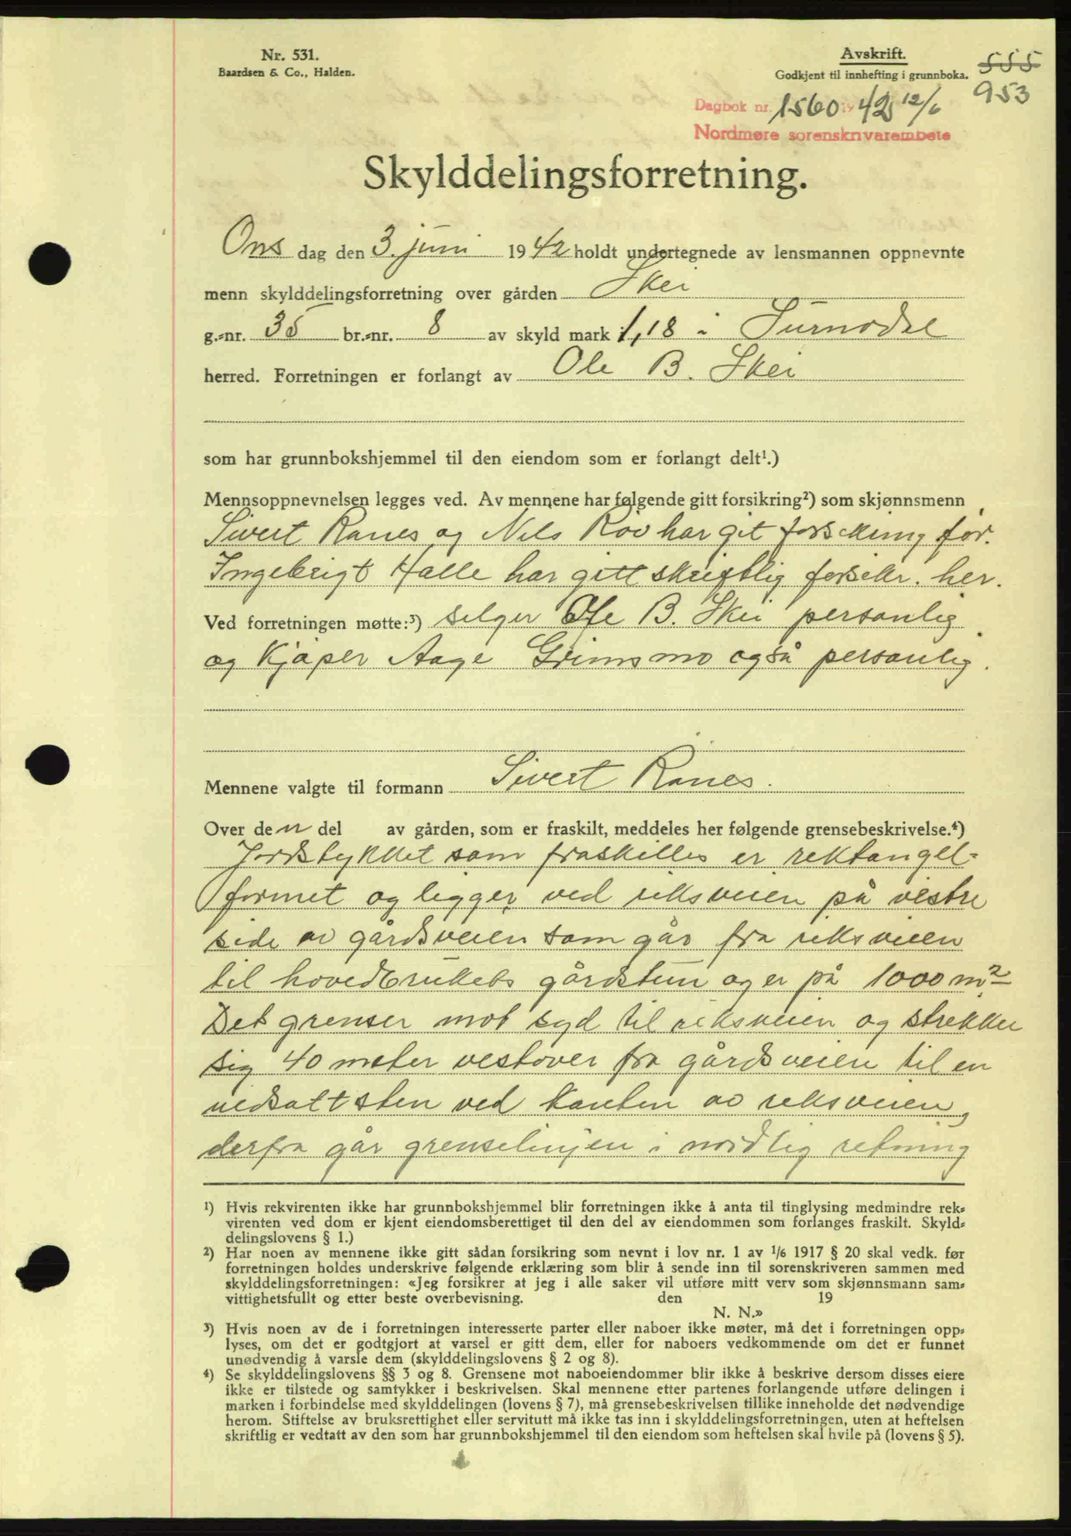 Nr. 531.
Baardsen & Co., Halden.
Avskrift.
Godkjent til innhefting i grunnboka.
555
953
Dagbok nr. 1560 19 42 12/6
Nordmøre sorenskriverembete
Skylddelingsforretning.
Ons dag den 3. juni 1942 holdt undertegnede av lensmannen oppnevnte
menn skylddelingsforretning over gården Skei
g.-nr. 35 br.-nr. 8 av skyld mark 1,18 i Surnadal
herred. Forretningen er forlangt av Ole B. Skei
som har grunnbokshjemmel til den eiendom som er forlangt delt¹.)
Mennsoppnevnelsen legges ved. Av mennene har følgende gitt forsikring²) som skjønnsmenn
Sivert Ranes og Nils Rov har git forsikring før.
Ingebrigt Halle har gitt skriftlig forsikr. her.
Ved forretningen møtte:³) selger Ole B. Skei personlig
og Kjøper Aage Grimsmo også personlig.
Mennene valgte til formann Sivert Ranes.
Over den del av gården, som er fraskilt, meddeles her følgende grensebeskrivelse.⁴)
Jordstykket som fraskilles er rektangel-
formet og ligger ved riksveien på vestre
side av gårdsveien som går fra riksveien
til hovedbrukets gårdstun og er på 1000 m²
Det grenser mot syd til riksveien og strekker
sig 40 meter vestover fra gårdsveien til en
nedsatt sten ved kanten av riksveien,
derfra går grenselinjen i nordlig retning
¹) Hvis rekvirenten ikke har grunnbokshjemmel blir forretningen ikke å anta til tinglysing medmindre rek-
virenten ved dom er kjent eiendomsberettiget til den del av eiendommen som forlanges fraskilt. Skyld-
delingslovens § 1.)
²) Har noen av mennene ikke gitt sådan forsikring som nevnt i lov nr. 1 av 1/6 1917 § 20 skal vedk. før
forretningen holdes underskrive følgende erklæring som blir å sende inn til sorenskriveren sammen med
skylddelingsforretningen: «Jeg forsikrer at jeg i alle saker vil utføre mitt verv som skjønnsmann sam-
vittighetsfullt og etter beste overbevisning. den 19
N. N.»
³) Hvis noen av de i forretningen interesserte parter eller naboer ikke møter, må det i forretningen opp-
lyses, om det er godtgjort at varsel er gitt dem, eller for naboers vedkommende om det er funnet
unødvendig å varsle dem (skylddelingslovens § 2 og 8).
⁴) Se skylddelingslovens §§ 3 og 8. Grensene mot naboeiendommer blir ikke å beskrive dersom disses eiere
ikke er tilstede og samtykker i beskrivelsen. Skal mennene etter partenes forlangende utføre delingen i
marken i forbindelse med skylddelingen (lovens § 7), må grensebeskrivelsen tillike inneholde det nødvendige
herom. Stiftelse av bruksrettighet eller servitutt må ikke tas inn i skylddelingsforretningen, uten at heftelsen
skriftlig er vedtatt av den som har grunnbokshjemmel til den eiendom som heftelsen skal hvile på (lovens § 5).